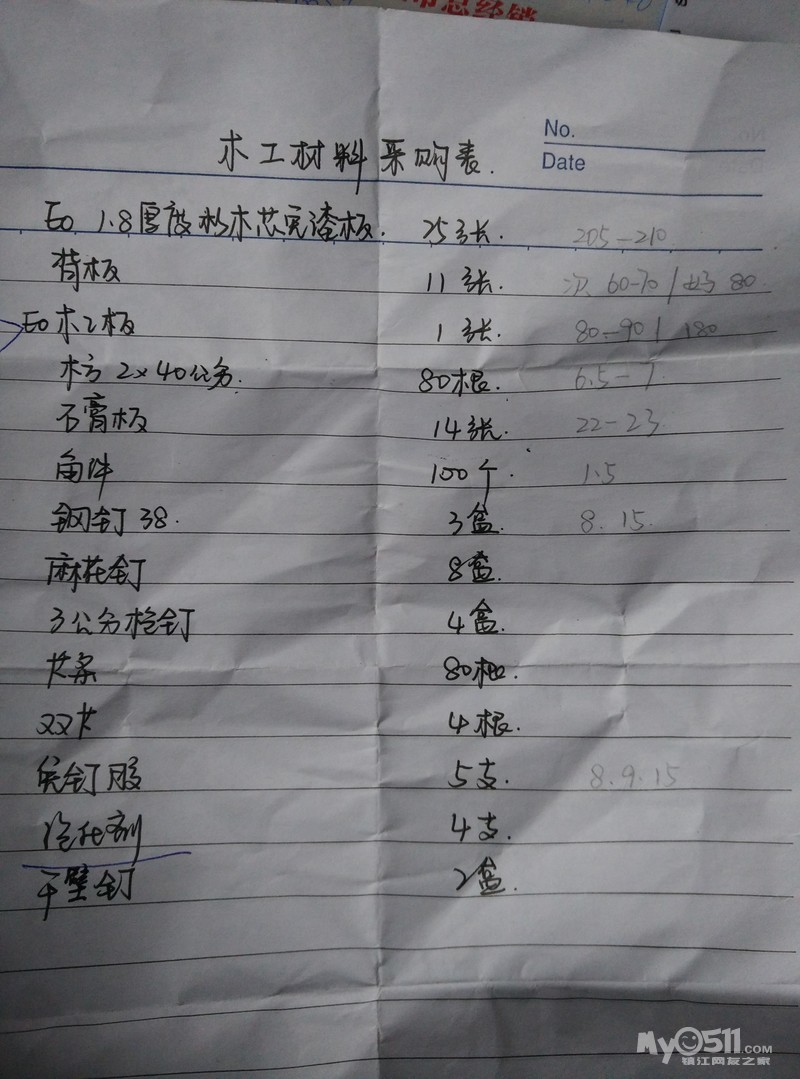 No.
木工材料采购表.
Date
E0 1.8厚度杉木芯免漆板. 25张. 205-210
背板 11张. 次 60-70 / 好 80
E0木工板 1张. 80-90 / 180
木方 2×40公分. 80根. 6.5-7
石膏板 14张. 22-23
角件 100个. 1.5
钢钉 38. 3盒. 8. 15.
麻花钉 8盒.
3公分枪钉 4盒.
80根.
双 4根.
免钉胶 5支. 8.9.15
4支.
干壁钉 2盒.
My0511.COM
镇江网友之家